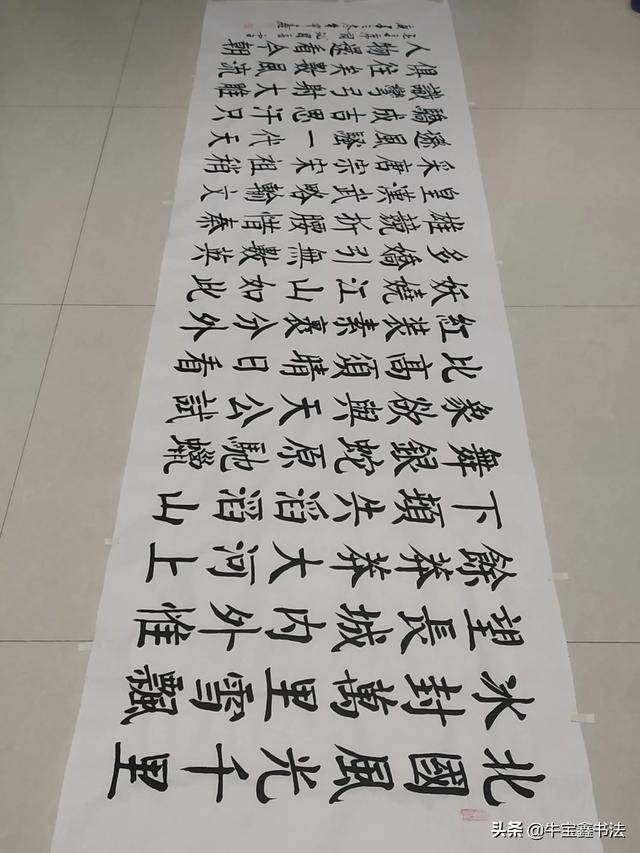 北國風光千里
冰封萬里雪飄
望長城內外惟
餘莽莽大河上
下頓失滔滔山
舞銀蛇原馳蠟
象欲與天公試
比高須晴日看
紅裝素裹分外
妖嬈江山如此
多嬌引無數英
雄競折腰惜秦
皇漢武略輸文
采唐宗宋祖稍
遜風騷一代天
驕成吉思汗只
識彎弓射大雕
俱往矣數風流
人物還看今朝
头条 @牛宝鑫书法